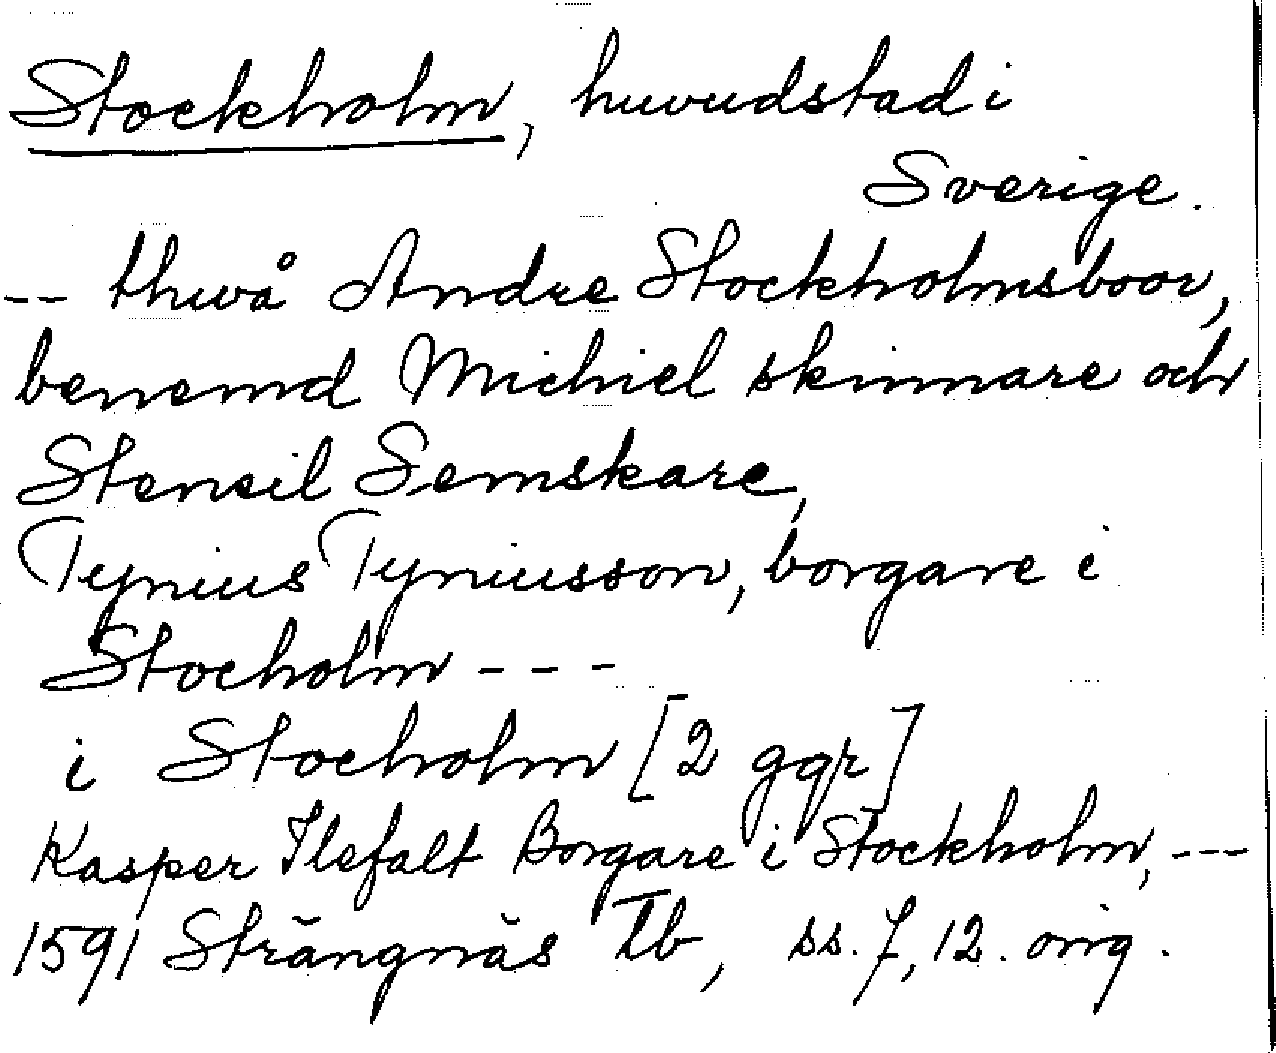 Stockholm, huvudstad i
Sverige.
-- thwå Andre Stockholmsboor,
benemd Michiel skinnare och
Stensil Semskare,
Tynius Tyniusson, borgare i
Stocholm ---
i Stocholm [2 ggr]
Kasper Ilefalt Borgare i Stockholm, ---
1591 Strängnäs Tb, ss. 7, 12. orig.